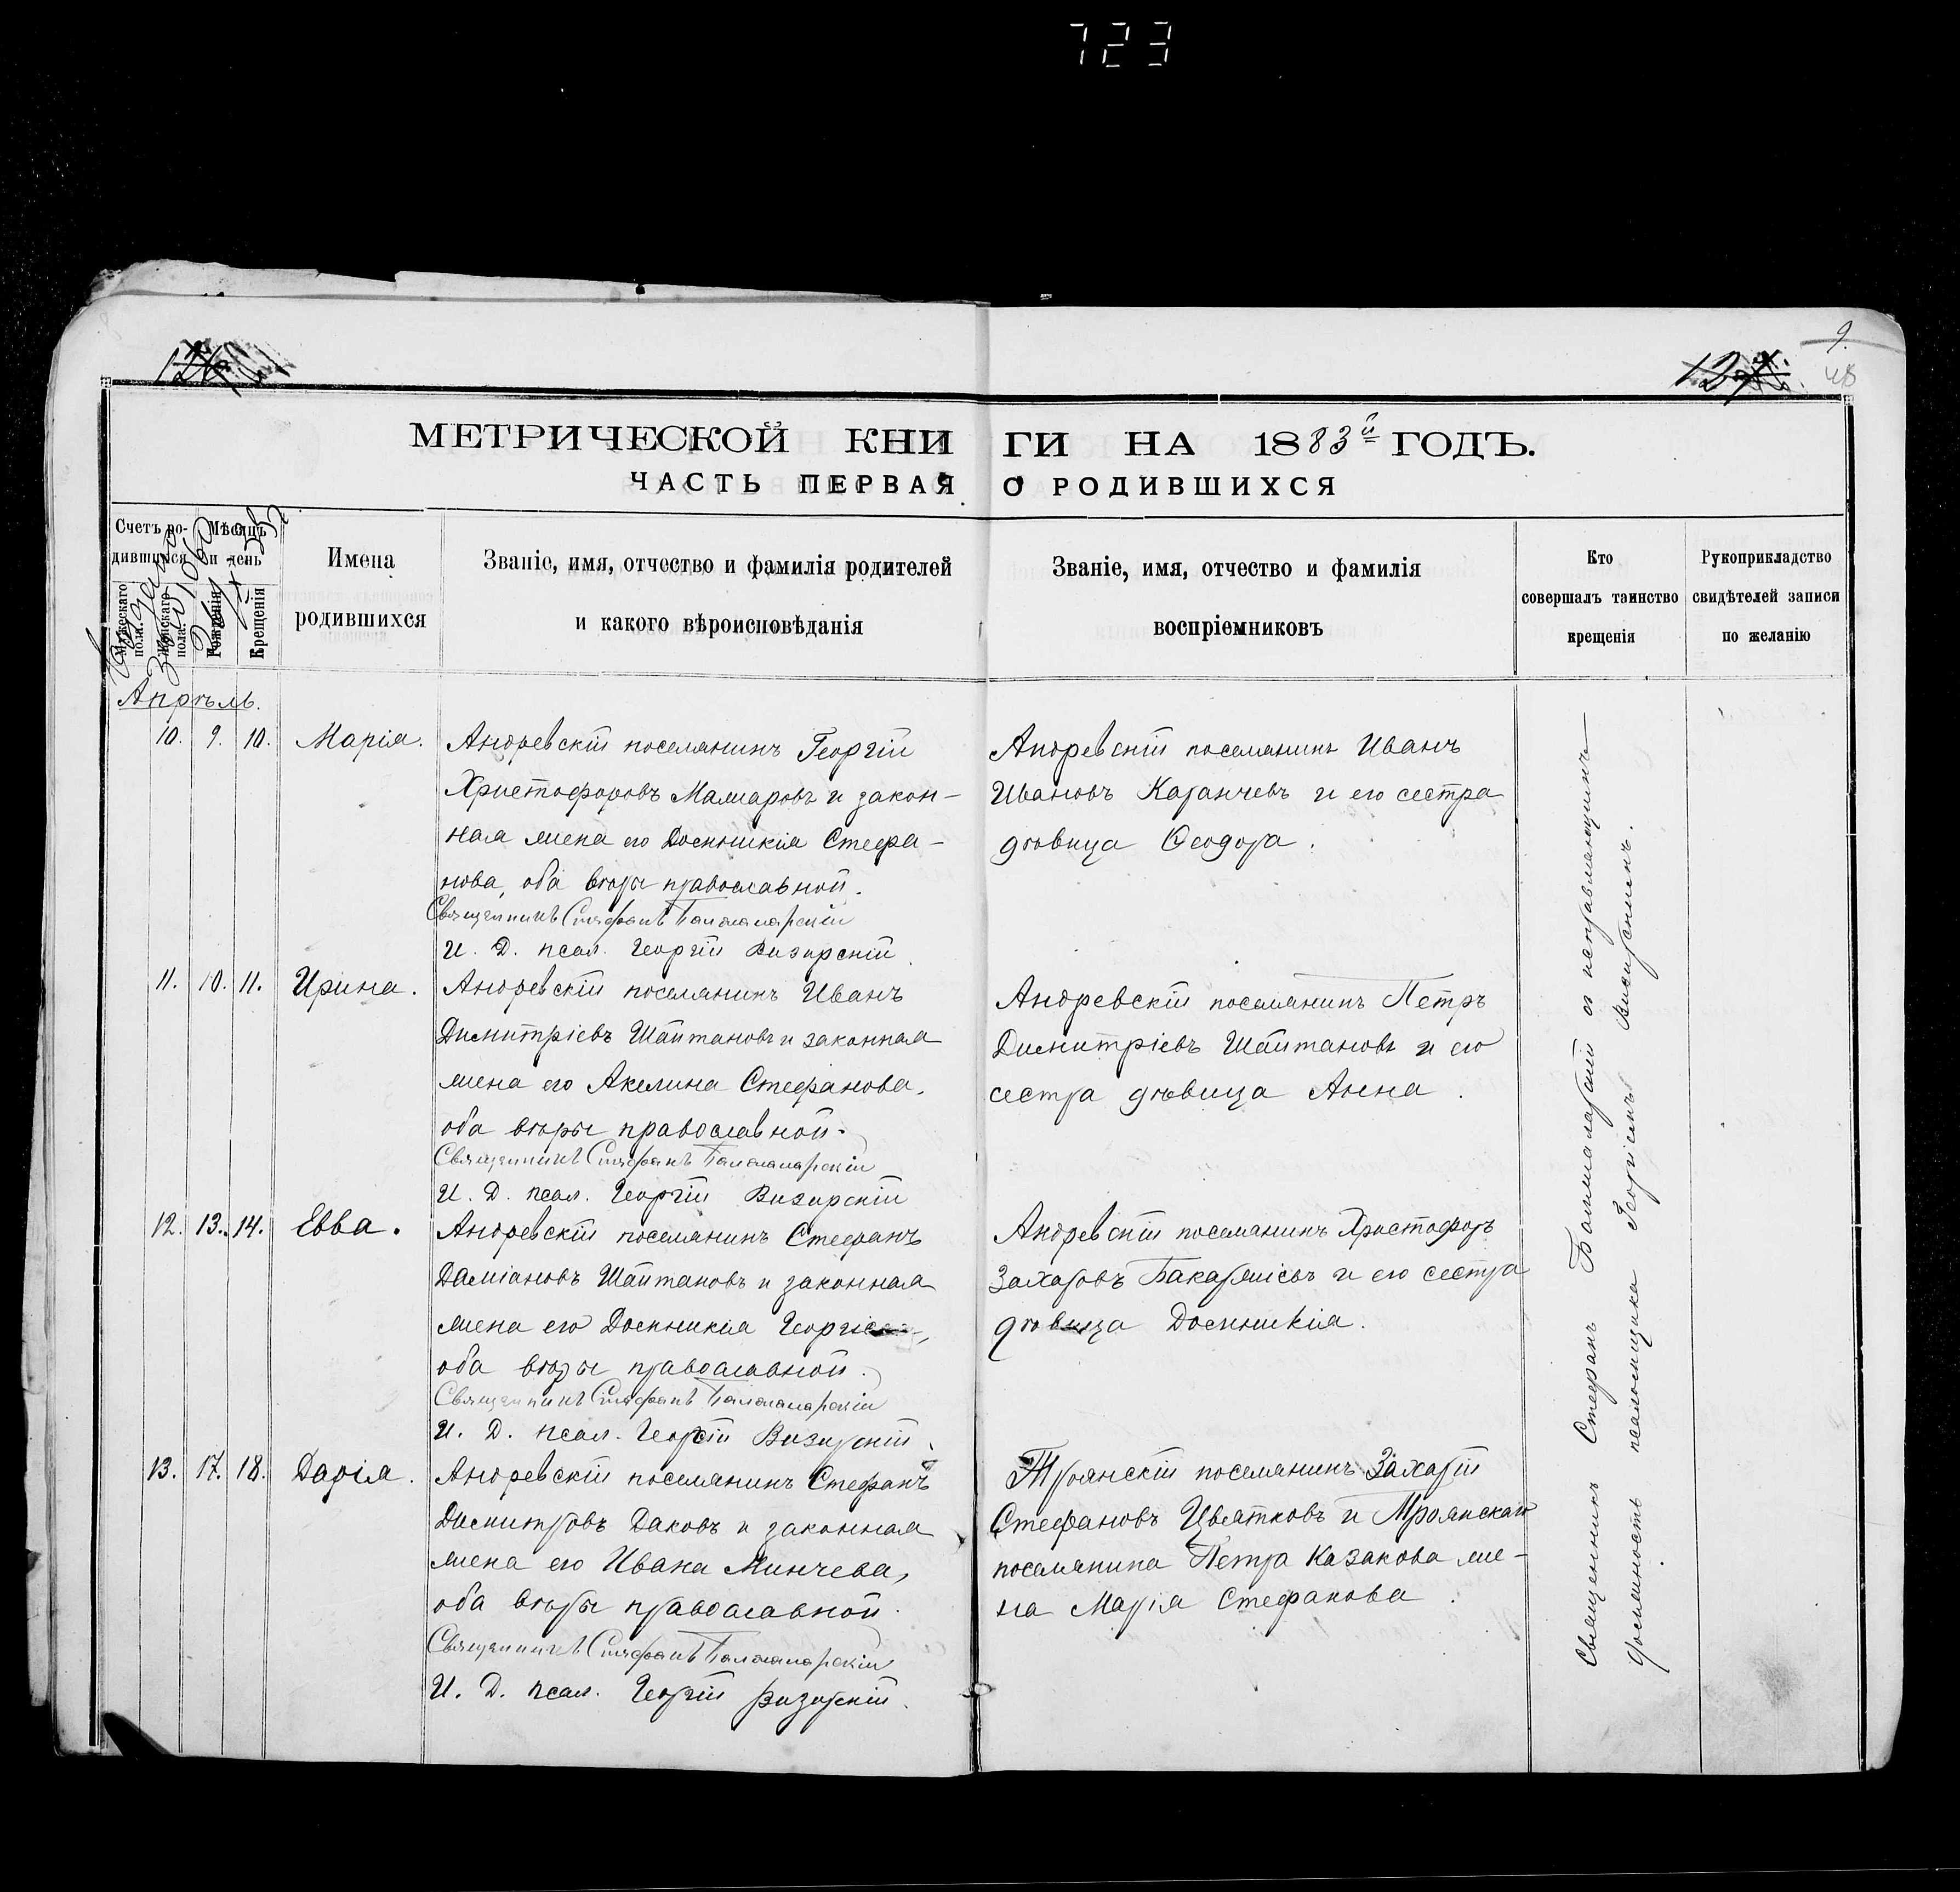 723
9.
МЕТРИЧЕСКОЙ КНИГИ НА 1883й ГОДЪ.
ЧАСТЬ ПЕРВАЯ О РОДИВШИХСЯ
Счетъ родившихся
Мужескаго пола.
Женскаго пола.
Мѣсяцъ и день
Рожденія
Крещенія
Имена
родившихся
Званіе, имя, отчество и фамилія родителей
и какого вѣроисповѣданія
Званіе, имя, отчество и фамилія
воспріемниковъ
Кто
совершалъ таинство
крещенія
Рукоприкладство
свидѣтелей записи
по желанію
Апрѣль.
10. 9. 10. Марія.
Андревскій поселянинъ Георгій
Христофоровъ Мамаровъ и закон-
ная жена его Домникія Стефа-
нова, оба вѣры православной.
Священникъ Стефанъ
И. Д. псал. Георгій Визирскій
Андревскій поселянинъ Иванъ
Ивановъ Каранчевъ и его сестра
дѣвица Ѳеодора.
11. 10. 11. Ирина.
Андревскій поселянинъ Иванъ
Димитріевъ Шайтановъ и законная
жена его Акелина Стефанова,
оба вѣры православной.
Священникъ Стефанъ
И. Д. псал. Георгій Визирскій
Андревскій поселянинъ Петръ
Димитріевъ Шайтановъ и его
сестра дѣвица Анна.
12. 13. 14. Евва.
Андревскій поселянинъ Стефанъ
Даміановъ Шайтановъ и законная
жена его Домникія
оба вѣры православной.
Священникъ Стефанъ
И. Д. псал. Георгій Визирскій.
Андревскій поселянинъ Христофоръ
Захаровъ и его сестра
дѣвица Домникія.
13. 17. 18. Дарія.
Андревскій поселянинъ Стефанъ
Димитровъ Даковъ и законная
жена его Ивана Минчева,
оба вѣры православной.
Священникъ Стефанъ
И. Д. псал. Георгій Визирскій.
Троянскій поселянинъ Захарій
Стефановъ Цвятковъ и Троянскаго
поселянина Петра Казакова же-
на Марія Стефанова.
Священникъ Стефанъ съ исправляющимъ
должность псаломщика Георгіемъ Визирскимъ.